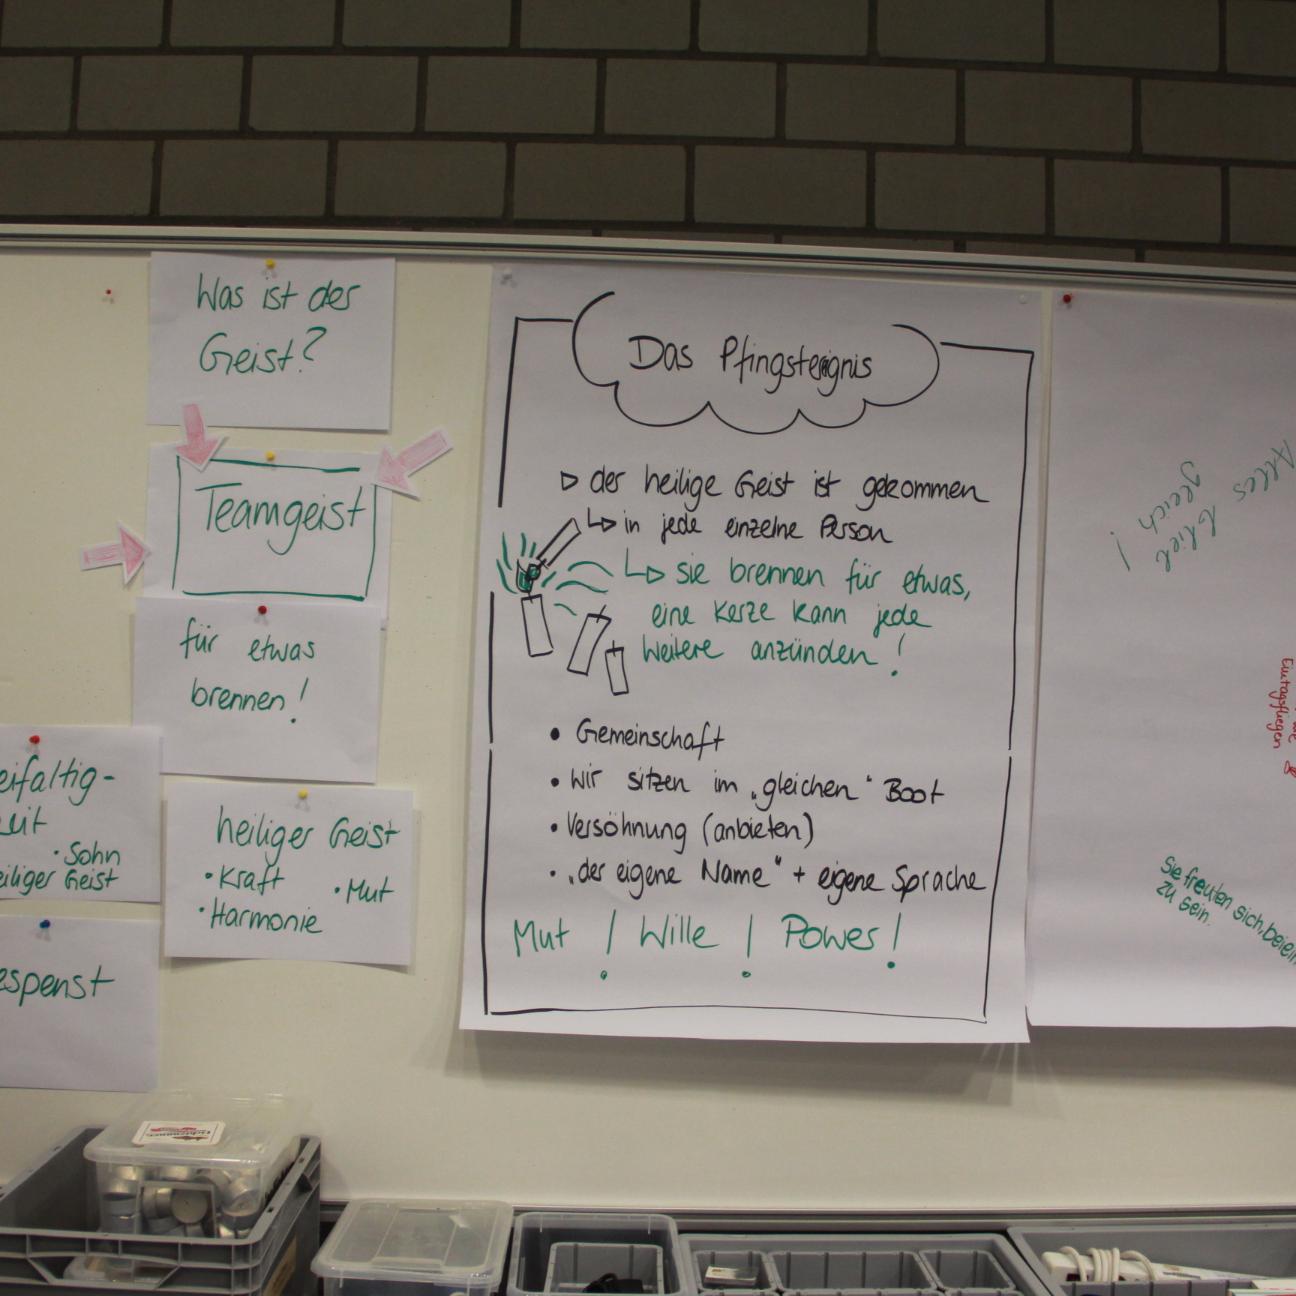 Was ist der
Geist?
Teamgeist
für etwas
brennen!
eifaltig-
eit
• Sohn
eiliger Geist
heiliger Geist
• Kraft
• Mut
• Harmonie
espenst
Das Pfingstereignis
▷ der heilige Geist ist gekommen
↳ in jede einzelne Person
↳ sie brennen für etwas,
eine Kerze kann jede
weitere anzünden!
• Gemeinschaft
• wir sitzen im „gleichen“ Boot
• Versöhnung (anbieten)
• „der eigene Name“ + eigene Sprache
Mut! Wille! Power!
Alles
blieb
gleich!
Eintagsfliegen
Sie freuten sich, beiein
zu sein.